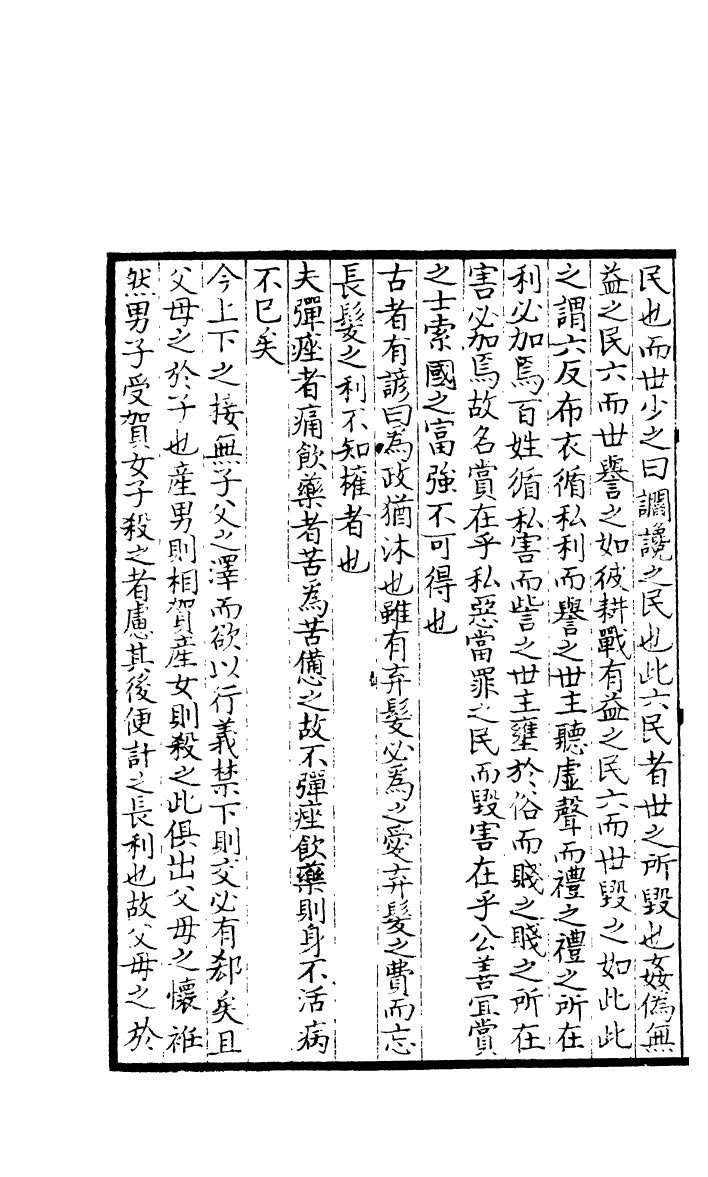 民也而世少之曰讇讒之民也此六民者世之所毀也姦僞無
益之民六而世譽之如彼耕戰有益之民六而世毀之如此此
之謂六反布衣循私利而譽之世主聽虛聲而禮之禮之所在
利必加焉百姓循私害而訾之世主壅於俗而賤之賤之所在
害必加焉故名賞在乎私惡當罪之民而毀害在乎公善宜賞
之士索國之富強不可得也
古者有諺曰為政猶沐也雖有弃髮必為之愛弃髮之費而忘
長髮之利不知權者也
夫彈痤者痛飲藥者苦為苦憊之故不彈痤飲藥則身不活病
不已矣
今上下之接無子父之澤而欲以行義禁下則交必有郄矣且
父母之於子也産男則相賀産女則殺之此俱出父母之懷袵
然男子受賀女子殺之者慮其後便計之長利也故父母之於